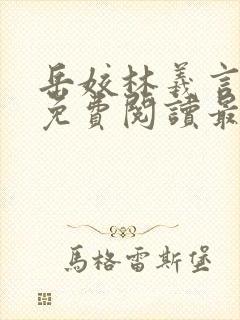 岳姣林義言
免費閱讀最
馬格雷斯堡